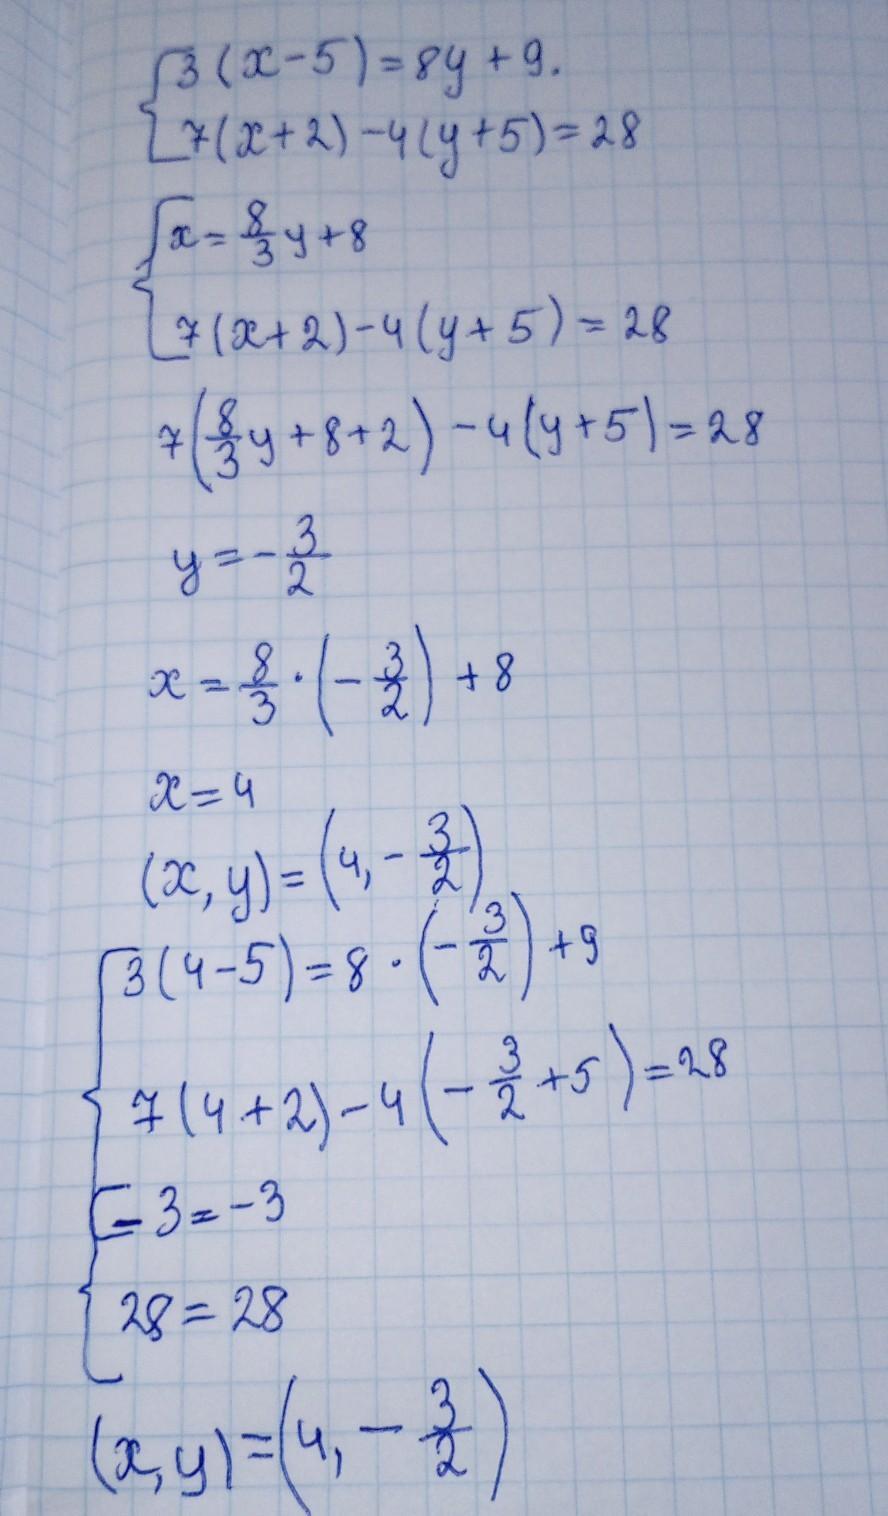 3(x-5)=8y+9.
7(x+2)-4(y+5)=28
x=8/3y+8
7(x+2)-4(y+5)=28
7(8/3y+8+2)-4(y+5)=28
y=-3/2
x=8/3·(-3/2)+8
x=4
(x,y)=(4,-3/2)
3(4-5)=8·(-3/2)+9
7(4+2)-4(-3/2+5)=28
-3=-3
28=28
(x,y)=(4,-3/2)